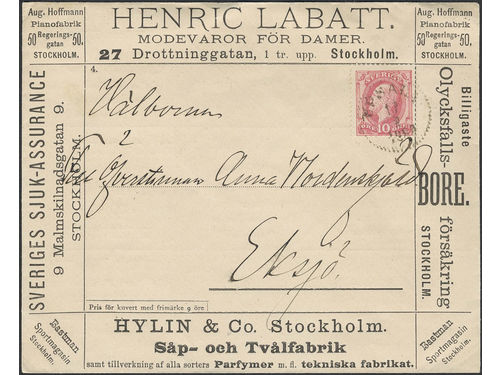 Aug. Hoffmann
Pianofabrik
50 Regerings- 50.
gatan
STOCKHOLM.
HENRIC LABATT.
MODEVAROR FÖR DAMER.
27 Drottninggatan, 1 tr. upp. Stockholm.
Aug. Hoffmann
Pianofabrik
50 Regerings- 50.
gatan
STOCKHOLM.
SVERIGES SJUK-ASSURANCE
9 Malmskilnadsgatan 9.
STOCKHOLM.
4.
SVERIGE
ÖRE 10 ÖRE
Välborna
2
Öfverstinnan Anna Nordenskjöld
Eksjö.
Pris för kuvert med frimärke 9 öre
Billigaste
Olycksfalls-
BORE.
försäkring
STOCKHOLM.
Eastman
Sportmagasin
Stockholm.
HYLIN & Co. Stockholm.
Såp- och Tvålfabrik
samt tillverkning af alla sorters Parfymer m. fl. tekniska fabrikat.
Eastman
Sportmagasin
Stockholm.